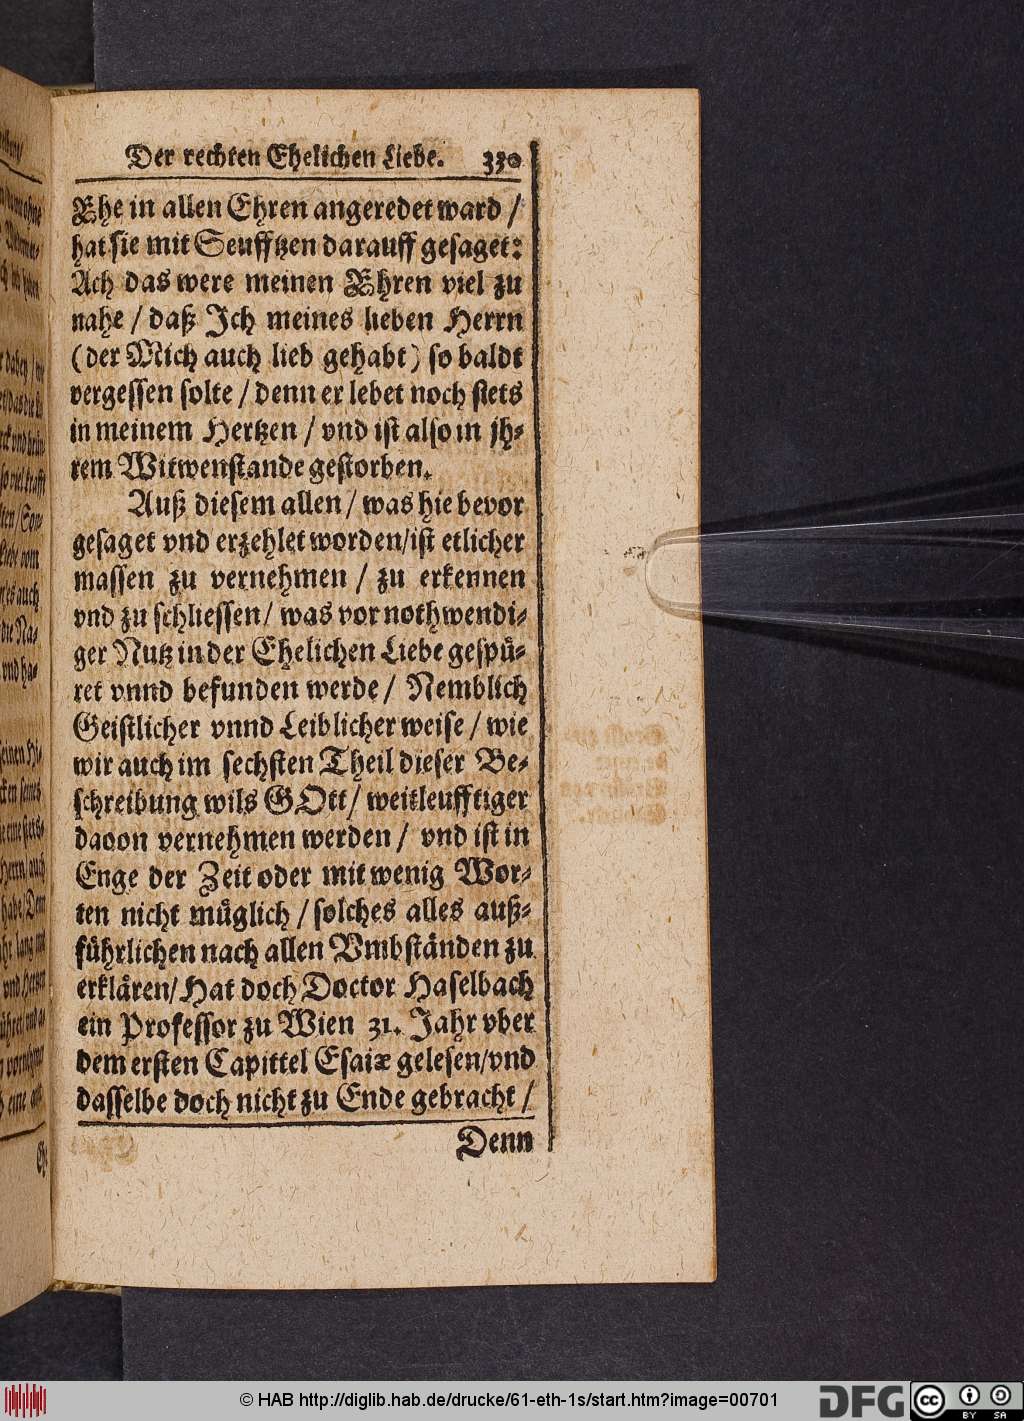 Der rechten Ehelichen Liebe. 330
Ehe in allen Ehren angeredet ward /
hat sie mit Seufftzen darauff gesaget:
Ach das were meinen Ehren viel zu
nahe / daß Ich meines lieben Herrn
(der Mich auch lieb gehabt) so baldt
vergessen solte / denn er lebet noch stets
in meinem Hertzen / vnd ist also in jh-
rem Witwenstande gestorben.
Auß diesem allen / was hie bevor
gesaget vnd erzehlet worden/ist etlicher
massen zu vernehmen / zu erkennen
vnd zu schliessen / was vor nothwendi-
ger Nutz in der Ehelichen Liebe gespü-
ret vnnd befunden werde / Nemblich
Geistlicher vnnd Leiblicher weise / wie
wir auch im sechsten Theil dieser Be-
schreibung wils GOtt / weitleufftiger
davon vernehmen werden / vnd ist in
Enge der Zeit oder mit wenig Wor-
ten nicht müglich / solches alles auß-
führlichen nach allen Vmbständen zu
erklären/Hat doch Doctor Haselbach
ein Professor zu Wien 31. Jahr vber
dem ersten Capittel Esaiæ gelesen/vnd
dasselbe doch nicht zu Ende gebracht /
Denn
© HAB http://diglib.hab.de/drucke/61-eth-1s/start.htm?image=00701
DFG
cc BY SA